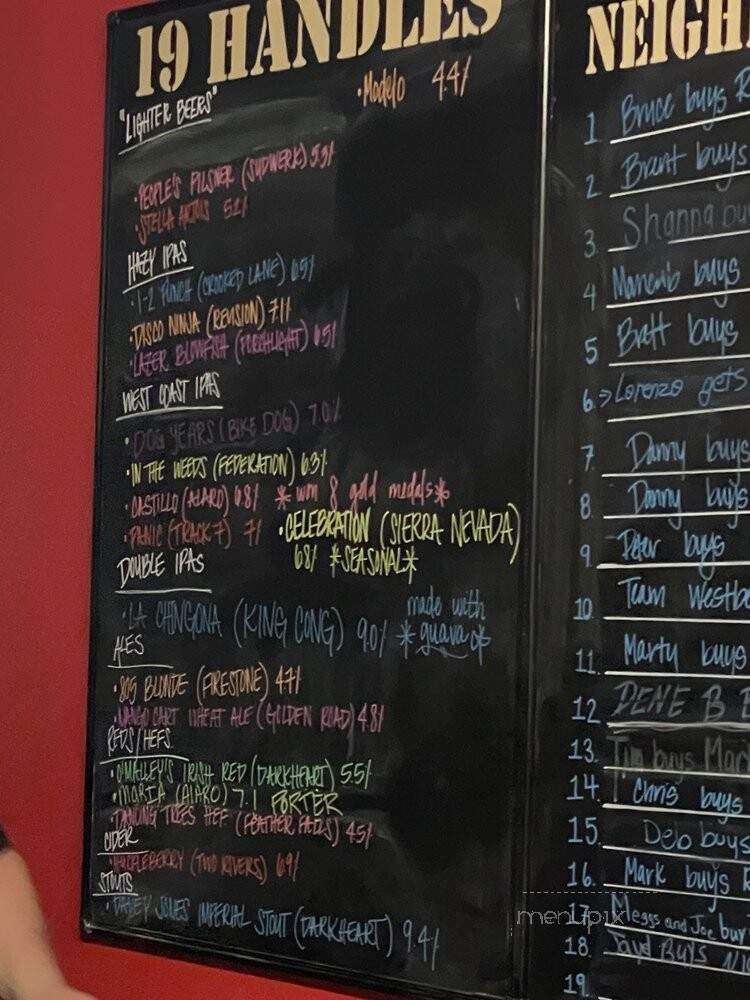 19 HANDLES
"LIGHTER BEERS"
•Modelo 4.4%
•PEOPLE'S PILSNER (SUDWERK) 5.3%
•STELLA ARTOIS 5.2%
HAZY IPAS
•1-2 PUNCH (CROOKED LANE) 6.5%
•DISCO NINJA (REVISION) 7.1%
•LAZER BLOWFISH (PORCHLIGHT) 6.5%
WEST COAST IPAS
•DOG YEARS (BIKE DOG) 7.0%
•IN THE WEEDS (FEDERATION) 6.3%
•CASTILLO (ALARO) 6.8% *won 8 gold medals*
•PANIC (TRACK 7) 7%
•CELEBRATION (SIERRA NEVADA)
6.8% *SEASONAL*
DOUBLE IPAS
•LA CHINGONA (KING CONG) 9.0%
made with
*guava*
ALES
•805 BLONDE (FIRESTONE) 4.7%
•MANGO CART WHEAT ALE (GOLDEN ROAD) 4.8%
REDS/HEFS
•O'MALLEY'S IRISH RED (DARKHEART) 5.5%
•MARIA (ALARO) 7.1 PORTER
•DANCING TREES HEF (FEATHER FALLS) 4.5%
CIDER
•HUCKLEBERRY (TWO RIVERS) 6.9%
STOUTS
•DAVEY JONES IMPERIAL STOUT (DARKHEART) 9.4%
NEIGH
1 Bruce buys R
2 Brant buys
3. Shanna bu
4 buys
5 Bratt buys
6. > Lorenzo gets
7. Danny buys
8. Danny buys
9. Peter buys
10. Team Westbe
11. Marty buys
12 DENE B
13. Tim buys Mar
14. Chris buys
15. Deb buys
16. Mark buys R
17. Meggs and Joe buy
18. BUYS
19.
menupix